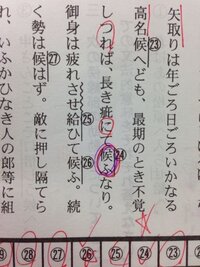 矢取りは年ごろ日ごろいかなる
高名候へども、最期のとき不覚
しつれば、長き疵に候ふなり。
御身は疲れさせ給ひて候ふ。続
く勢は候はず。敵に押し隔てら
れ、いふかひなき人の郎等に組
㉓
㉔
㉕
㉖
㉗
㉙ ㉘ ㉗ ㉖ ㉕ ㉔ ㉓